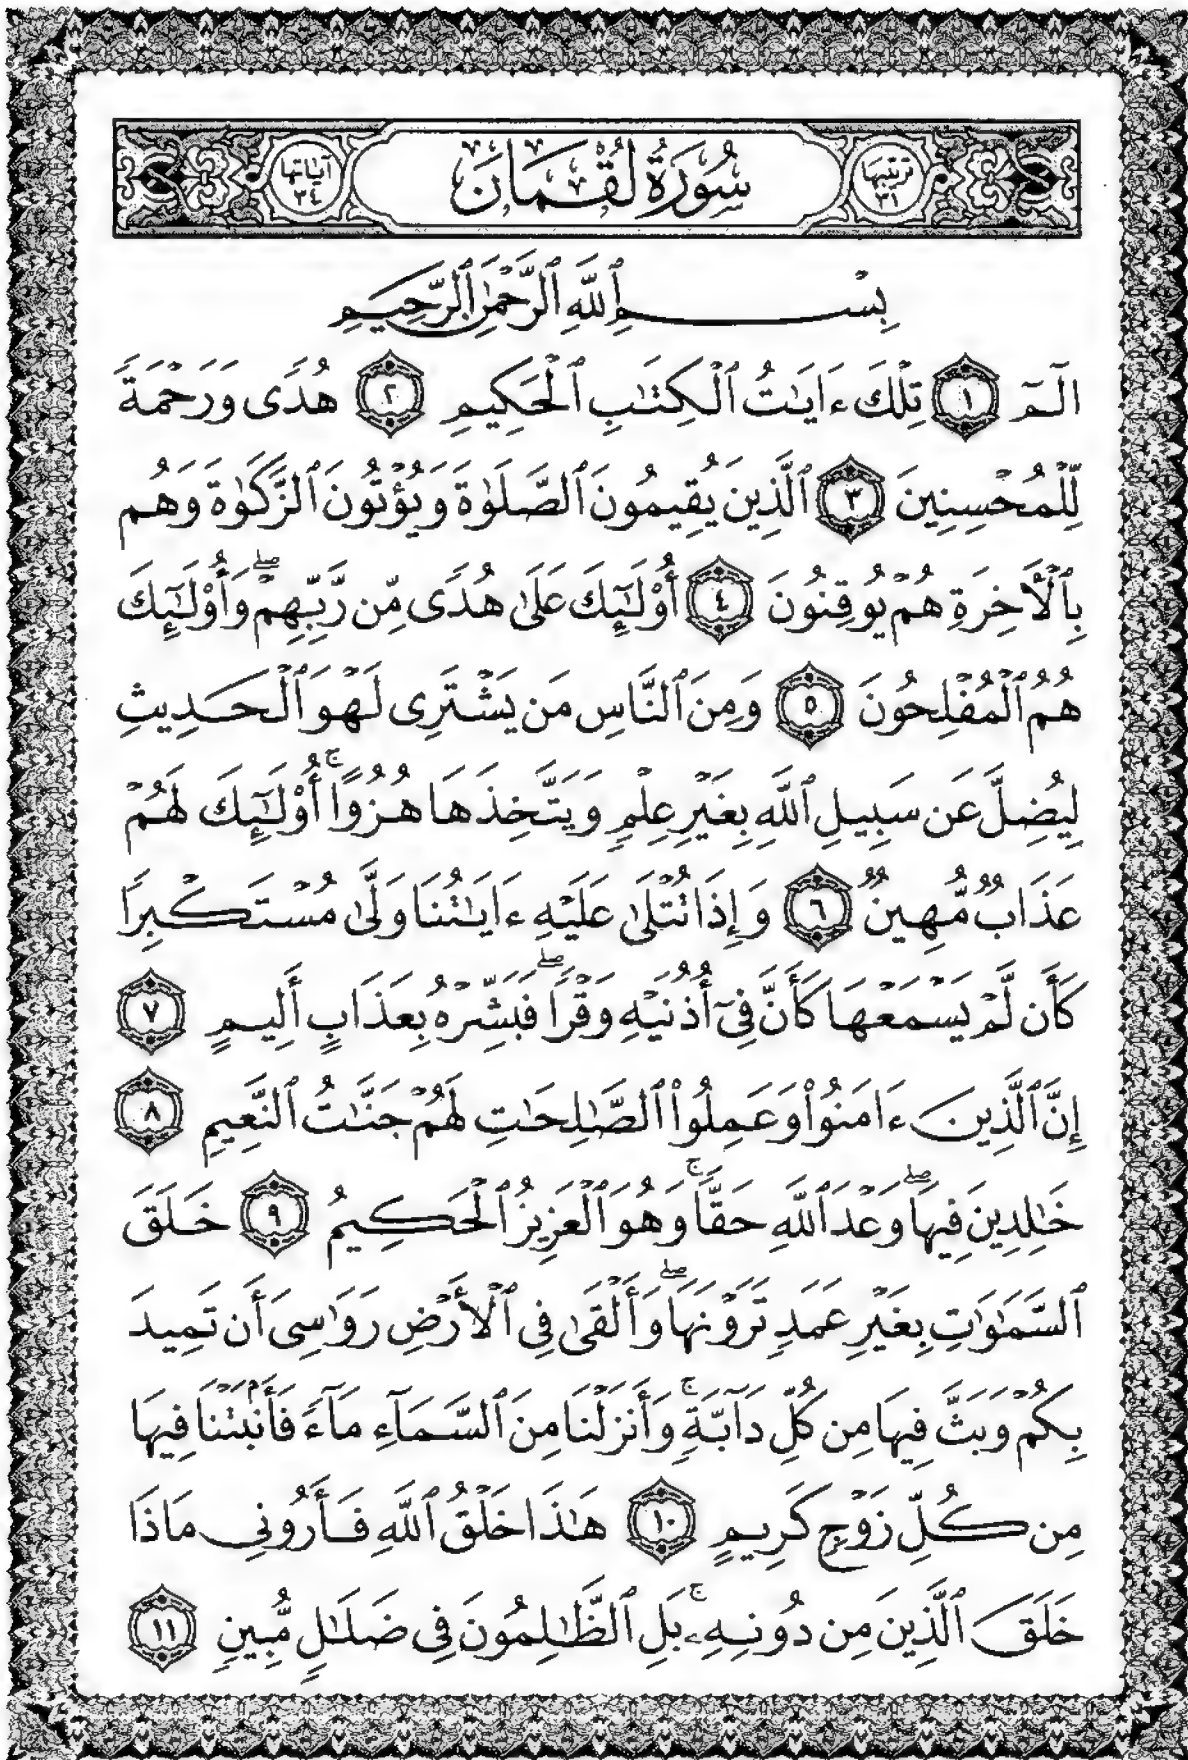 ترتيبها ٣١ سُورَةُ لُقْمَان آياتها ٣٤
بِسْمِ ٱللَّهِ ٱلرَّحْمَٰنِ ٱلرَّحِيمِ
الٓمٓ ١ تِلْكَ ءَايَٰتُ ٱلْكِتَٰبِ ٱلْحَكِيمِ ٢ هُدًى وَرَحْمَةً
لِّلْمُحْسِنِينَ ٣ ٱلَّذِينَ يُقِيمُونَ ٱلصَّلَوٰةَ وَيُؤْتُونَ ٱلزَّكَوٰةَ وَهُم
بِٱلْأَخِرَةِ هُمْ يُوقِنُونَ ٤ أُو۟لَٰٓئِكَ عَلَىٰ هُدًى مِّن رَّبِّهِمْ ۖ وَأُو۟لَٰٓئِكَ
هُمُ ٱلْمُفْلِحُونَ ٥ وَمِنَ ٱلنَّاسِ مَن يَشْتَرِى لَهْوَ ٱلْحَدِيثِ
لِيُضِلَّ عَن سَبِيلِ ٱللَّهِ بِغَيْرِ عِلْمٍ وَيَتَّخِذَهَا هُزُوًا ۚ أُو۟لَٰٓئِكَ لَهُمْ
عَذَابٌ مُّهِينٌ ٦ وَإِذَا تُتْلَىٰ عَلَيْهِ ءَايَٰتُنَا وَلَّىٰ مُسْتَكْبِرًا
كَأَن لَّمْ يَسْمَعْهَا كَأَنَّ فِىٓ أُذُنَيْهِ وَقْرًا ۖ فَبَشِّرْهُ بِعَذَابٍ أَلِيمٍ ٧
إِنَّ ٱلَّذِينَ ءَامَنُوا۟ وَعَمِلُوا۟ ٱلصَّٰلِحَٰتِ لَهُمْ جَنَّٰتُ ٱلنَّعِيمِ ٨
خَٰلِدِينَ فِيهَا ۖ وَعْدَ ٱللَّهِ حَقًّا ۚ وَهُوَ ٱلْعَزِيزُ ٱلْحَكِيمُ ٩ خَلَقَ
ٱلسَّمَٰوَٰتِ بِغَيْرِ عَمَدٍ تَرَوْنَهَا ۖ وَأَلْقَىٰ فِى ٱلْأَرْضِ رَوَٰسِىَ أَن تَمِيدَ
بِكُمْ وَبَثَّ فِيهَا مِن كُلِّ دَآبَّةٍ ۚ وَأَنزَلْنَا مِنَ ٱلسَّمَآءِ مَآءً فَأَنۢبَتْنَا فِيهَا
مِن كُلِّ زَوْجٍ كَرِيمٍ ١٠ هَٰذَا خَلْقُ ٱللَّهِ فَأَرُونِى مَاذَا
خَلَقَ ٱلَّذِينَ مِن دُونِهِۦ ۚ بَلِ ٱلظَّٰلِمُونَ فِى ضَلَٰلٍ مُّبِينٍ ١١